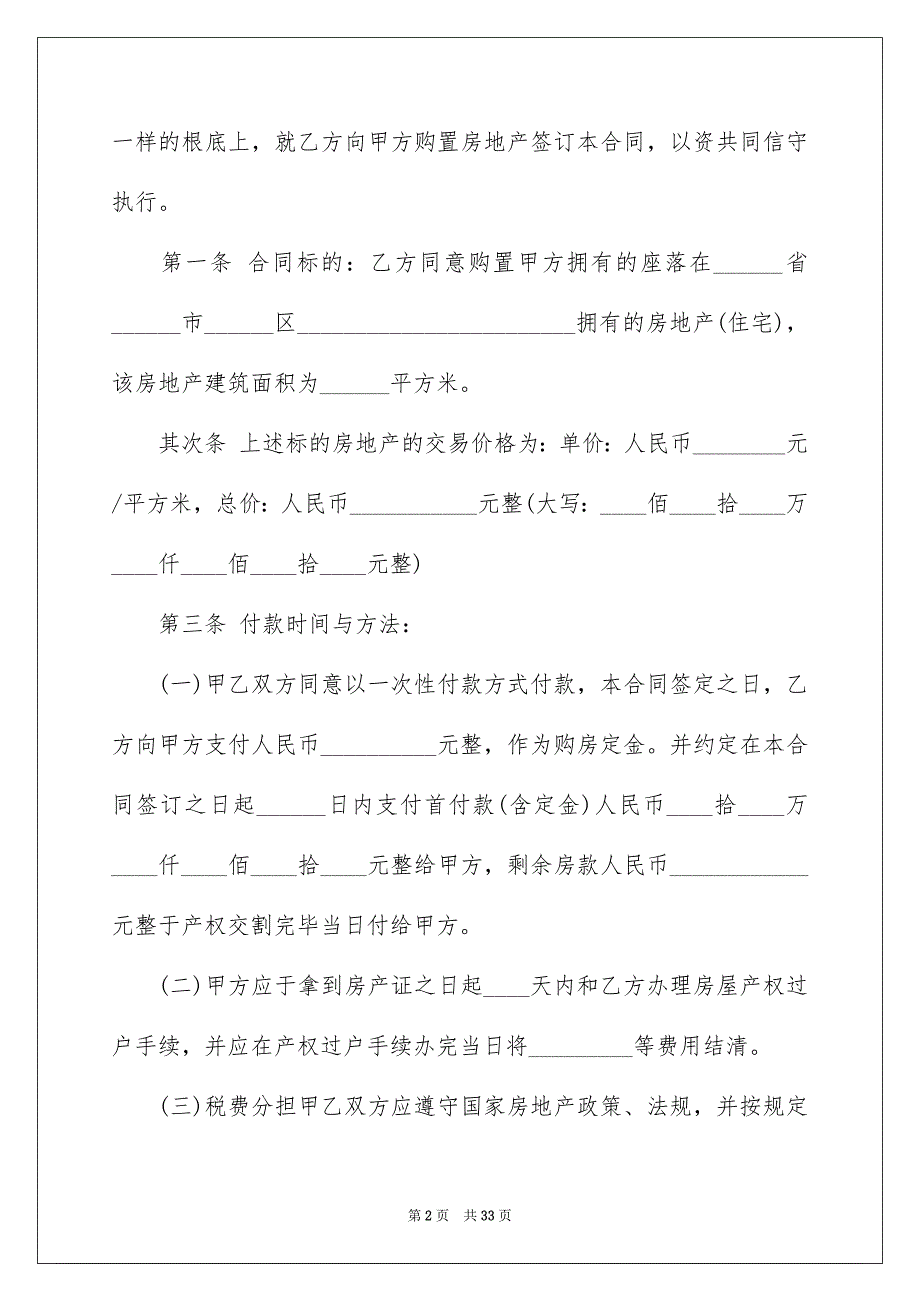 一样的根底上，就乙方向甲方购置房地产签订本合同，以资共同信守
执行。
第一条 合同标的：乙方同意购置甲方拥有的座落在______省
______市______区________________________拥有的房地产(住宅)，
该房地产建筑面积为______平方米。
其次条 上述标的房地产的交易价格为：单价：人民币________元
/平方米，总价：人民币___________元整(大写：____佰____拾____万
____仟____佰____拾____元整)
第三条 付款时间与方法：
(一)甲乙双方同意以一次性付款方式付款，本合同签定之日，乙
方向甲方支付人民币__________元整，作为购房定金。并约定在本合
同签订之日起______日内支付首付款(含定金)人民币____拾____万
____仟____佰____拾____元整给甲方，剩余房款人民币____________
元整于产权交割完毕当日付给甲方。
(二)甲方应于拿到房产证之日起____天内和乙方办理房屋产权过
户手续，并应在产权过户手续办完当日将_________等费用结清。
(三)税费分担甲乙双方应遵守国家房地产政策、法规，并按规定
第 2 页 共 33 页